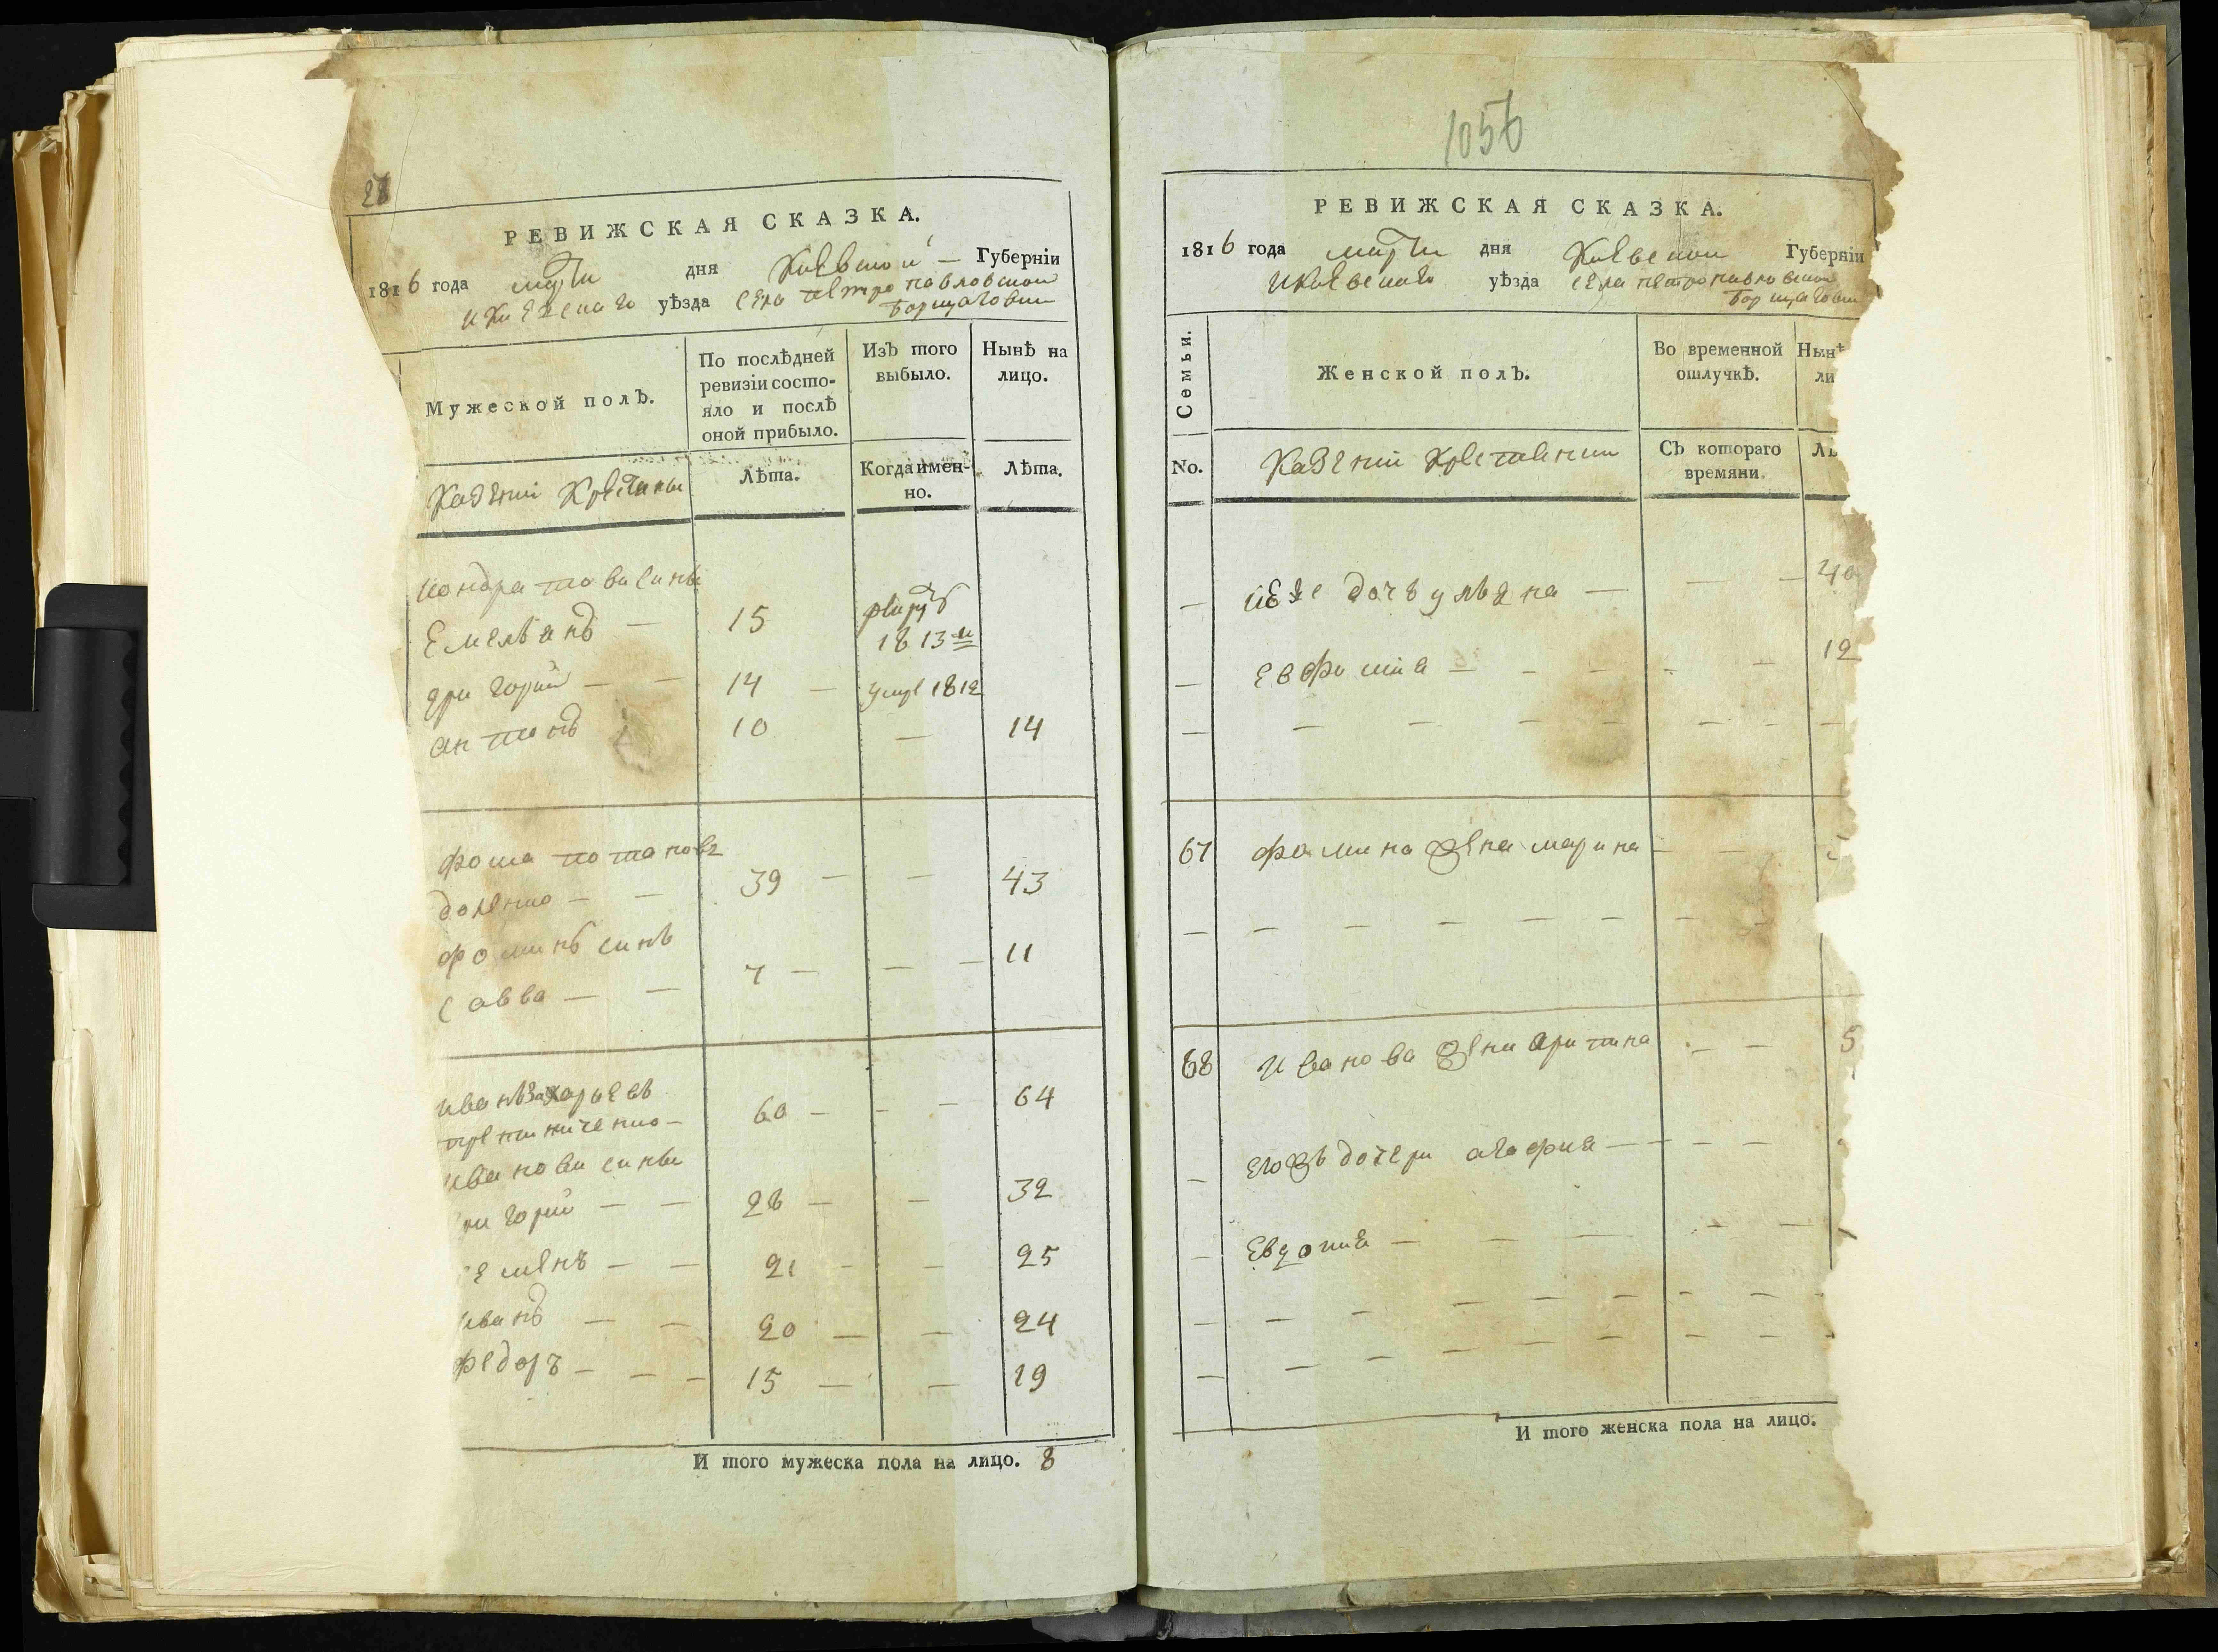 27
РЕВИЖСКАЯ СКАЗКА.
1816 года марта дня Киевской Губерніи
и Киевскаго уѣзда села петропавловской
Борщаговки
Мужеской полъ.
По послѣдней
ревизіи состо-
яло и послѣ
оной прибыло.
Изъ того
выбыло.
Нынѣ на
лицо.
Казенні Крестяны
Лѣта.
Когда имен-
но.
Лѣта.
кондратови сины
Емельянъ — 15
1813
григорий — — 14 — умре 1812
антонъ 10 — 14
фома потаповъ
39 — — 43
фоминъ синъ
савва — — 7 — — — 11
иванъ Захарьевъ
60 — — — 64
иванови сины
григорий — — 28 — — 32
семенъ — — 21 — — 25
иванъ — — 20 — — 24
федоръ — — — 15 — — 19
И того мужеска пола на лицо. 8
1056
РЕВИЖСКАЯ СКАЗКА.
1816 года марта дня Киевской Губерніи
и Киевскаго уѣзда села петропавловской
Борщаговки
Семьи.
Женской полъ.
Во временной
отлучкѣ.
Нынѣ
ли
No.
Казенні Крестянки
Съ котораго
времяни.
Лѣ
— дочь ульяна — — — 40
— евфимія — — — — — 12
— — — — — — — —
67 фомина жена марина — —
— — — — — — — —
68 иванова жена христина — — 5
— егожъ дочери агафия — — — —
— Евдокия — — — — —
— — — — — — — — —
— — — — — — — — —
И того женска пола на лицо.